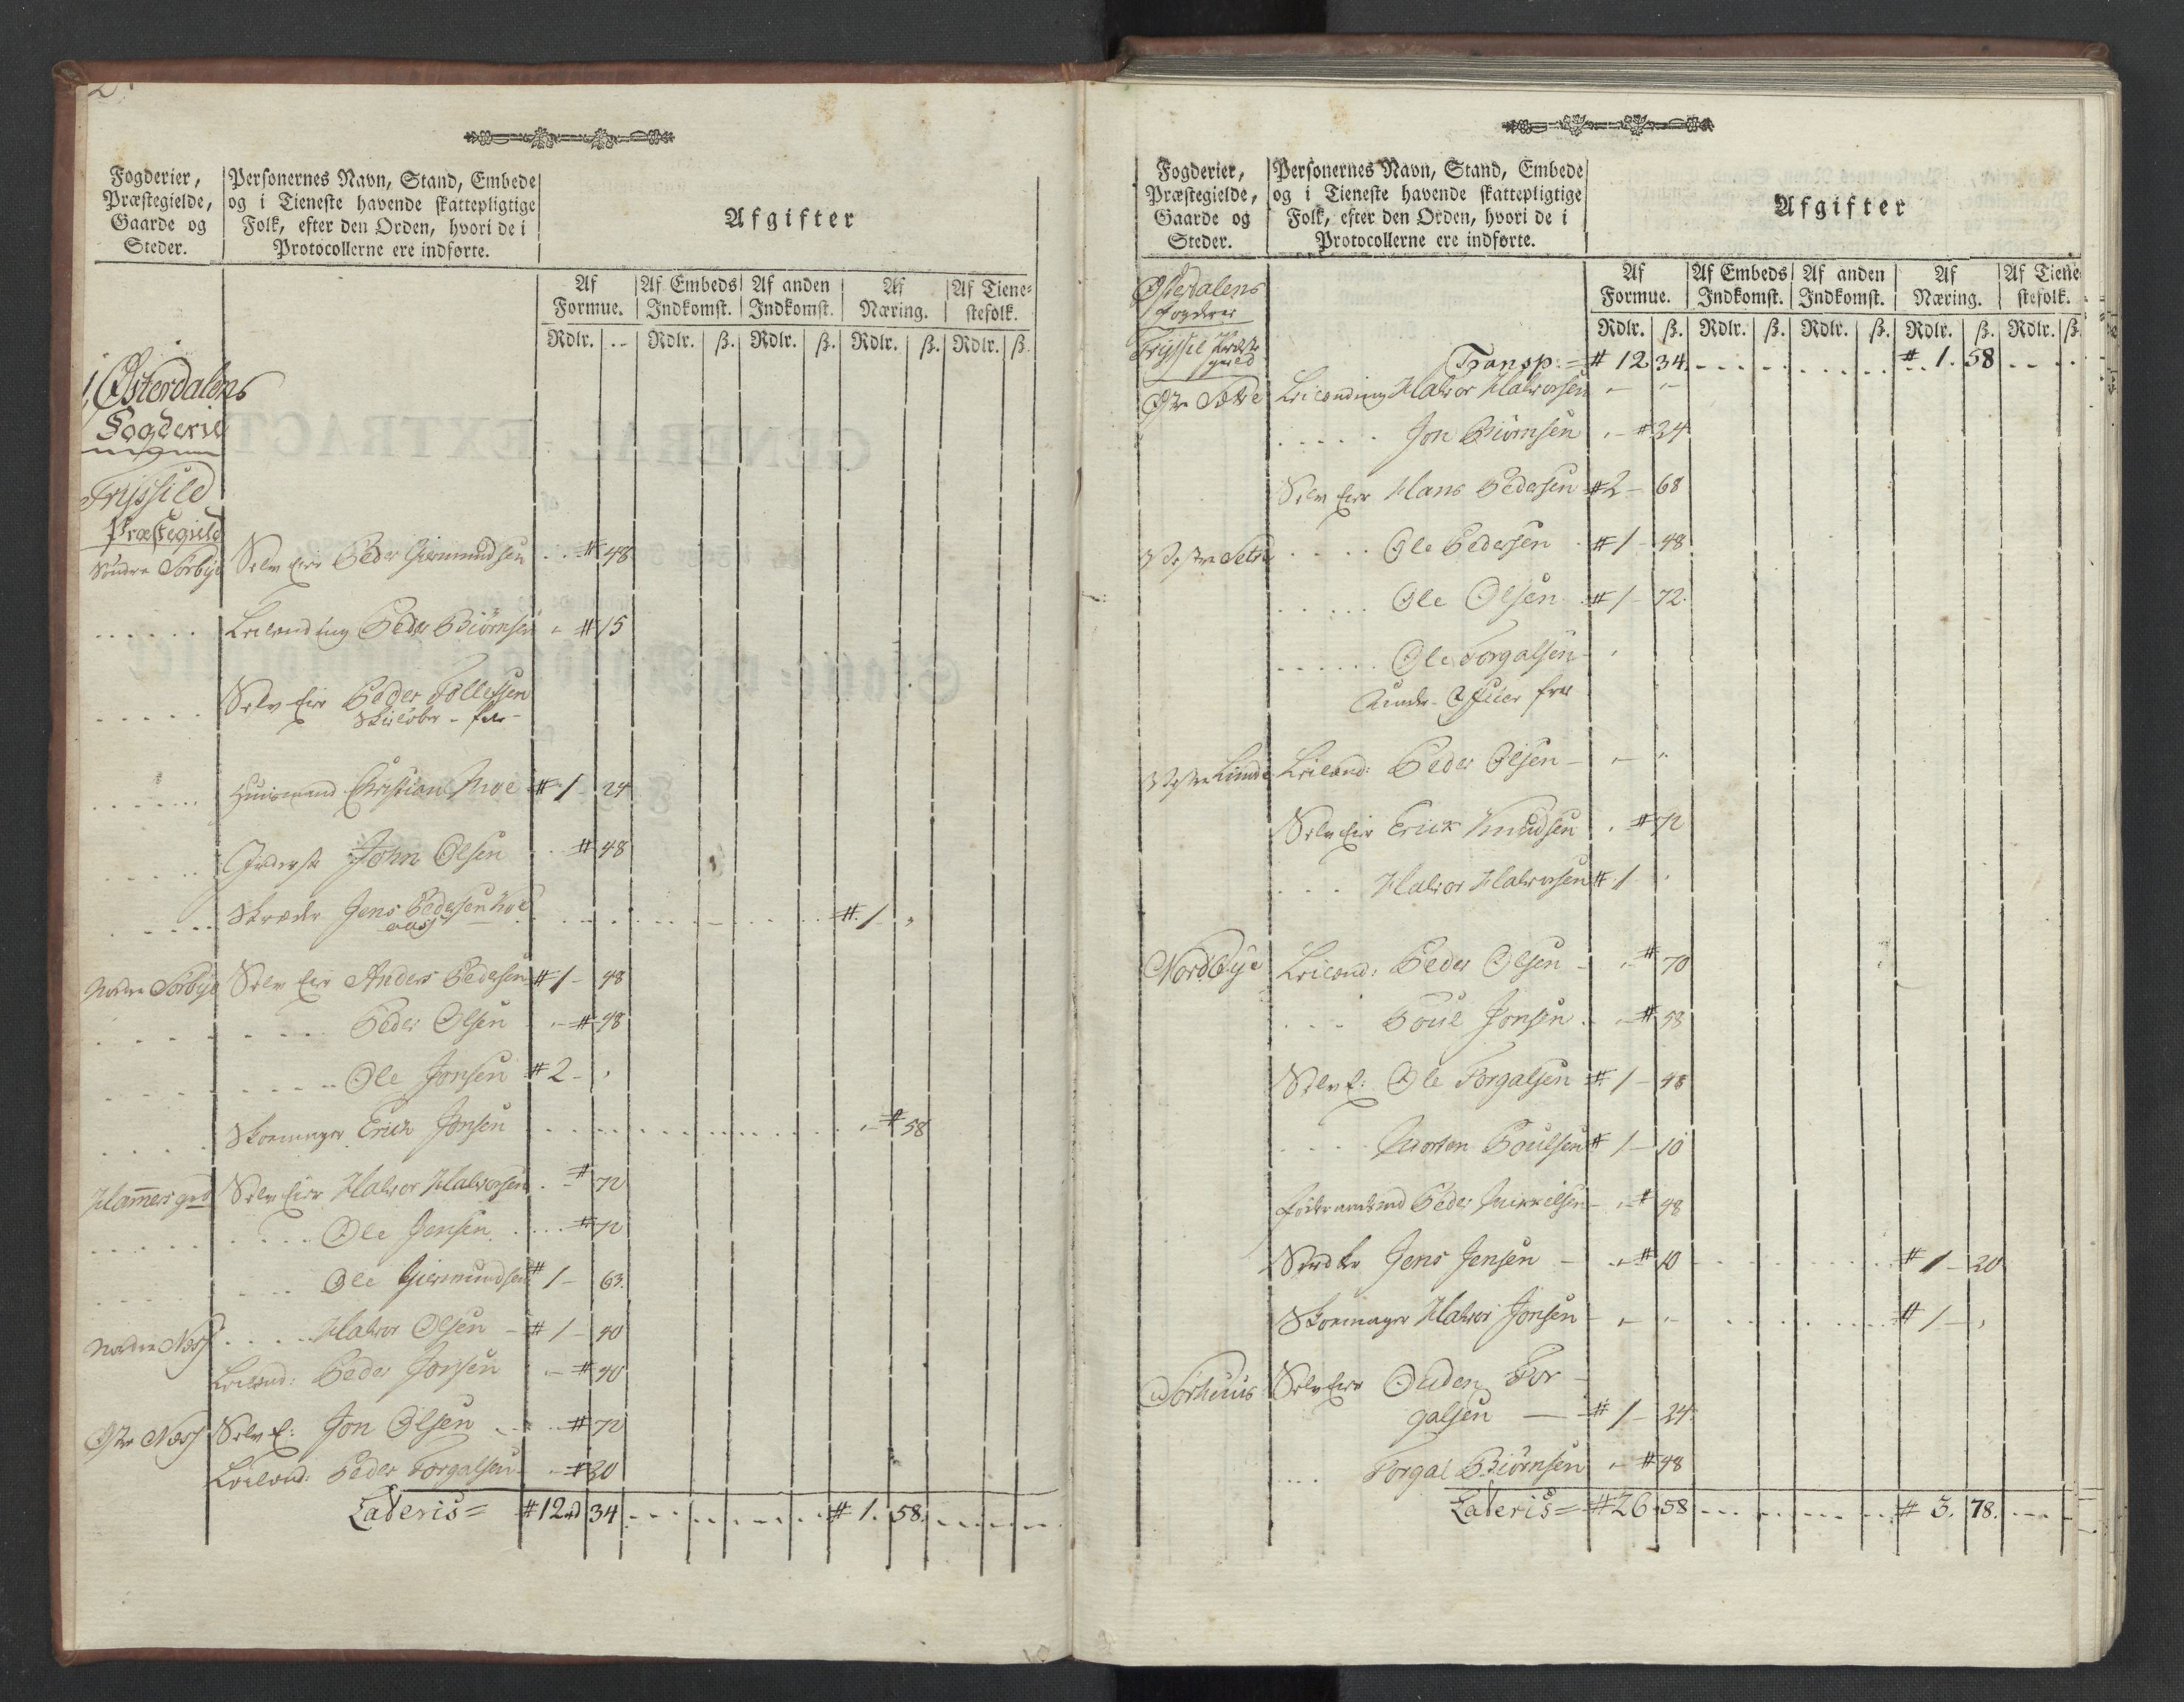 2.
Fogderier,
Præstegielde,
Gaarde og
Steder.
Personernes Navn, Stand, Embede
og i Tieneste havende skattepligtige
Folk, efter den Orden, hvori de i
Protocollerne ere indførte.
Afgifter
Af Formue. Af Embeds Indkomst. Af anden Indkomst. Af Næring. Af Tiene-stefolk.
Rdlr. Rdlr. ß. Rdlr. ß. Rdlr. ß. Rdlr. ß.
Østerdalens
Fogderie
Tryssild
Præstegield
Søndre Sørbye Selv Eier Peder Giermundsen # 48
Leilending Peder Biörnsen # 15
Selv Eier Peder Tollefsen
Skilöber - frie -
Huusmand Christian Moe # 1 - 24
Inderst John Olsen # 48
Skræder Jens Pedersen # 1 "
Nordre Sørbye Selv Eier Anders Pedersen # 1 - 48
Peder Olsen # 48
Ole Jonsen # 2 - "
Skoemager Erich Jonsen # 58
Hammers Selv Eier Halvor Halvorsen # 72
Ole Jensen # 72
Ole Giermundsen # 1 - 63.
Nordre Næss Halvor Olsen # 1 - 40
Leilend: Peder Jonsen # 40
Øst Næss Selv E: Jon Olsen # 72
Leilend: Peder Torgalsen # 20
Lateris = # 12 34 # 1. 58.
Fogderier,
Præstegielde,
Gaarde og
Steder.
Personernes Navn, Stand, Embede
og i Tieneste havende skattepligtige
Folk, efter den Orden, hvori de i
Protocollerne ere indførte.
Afgifter
Af Formue. Af Embeds Indkomst. Af anden Indkomst. Af Næring. Af Tiene stefolk.
Rdlr. ß. Rdlr. ß. Rdlr. ß. Rdlr. ß. Rdlr. ß.
Østerdalens
Fogderie
Tryssil Præste
gield
Transp: = # 12 34. # 1. 58
Leilending Halvor Halvorsen " "
Jon Biörnsen # 24
Selv Eier Hans Pedersen # 2 - 68
Vestre Setre Ole Pedersen # 1 - 48
Ole Olsen # 1 - 72.
Ole Torgalsen
Under Officer frie
Vestre Linde Leilend: Peder Olsen - "
Selv Eier Erick Knudsen # 72
Halvor Halvorsen # 1 "
Nordbye Leilend: Peder Olsen # 70
Poul Jonsen # 58
Selv E: Ole Torgalsen # 1 - 48
Morten Poulsen # 1 - 10
Peder Mikkelsen # 48
Jens Jensen # 10 # 1 - 20
Skoemager Halvor Jonsen " " # 1 - "
Sørhuus Selv Eier Ouden Tor-
galsen # 1 - 24
Torgal Biörnsen # 48
Lateris = # 26 58 # 3. 78.